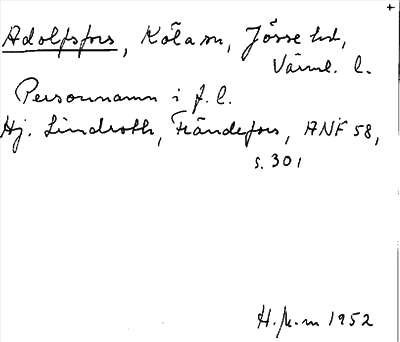 Adolfsfors, Köla sn, Jösse hd,
Värml. l.
Personnamn i f. l.
Hj. Lindroth, Frändefors, ANF 58,
s. 301
H. 1952